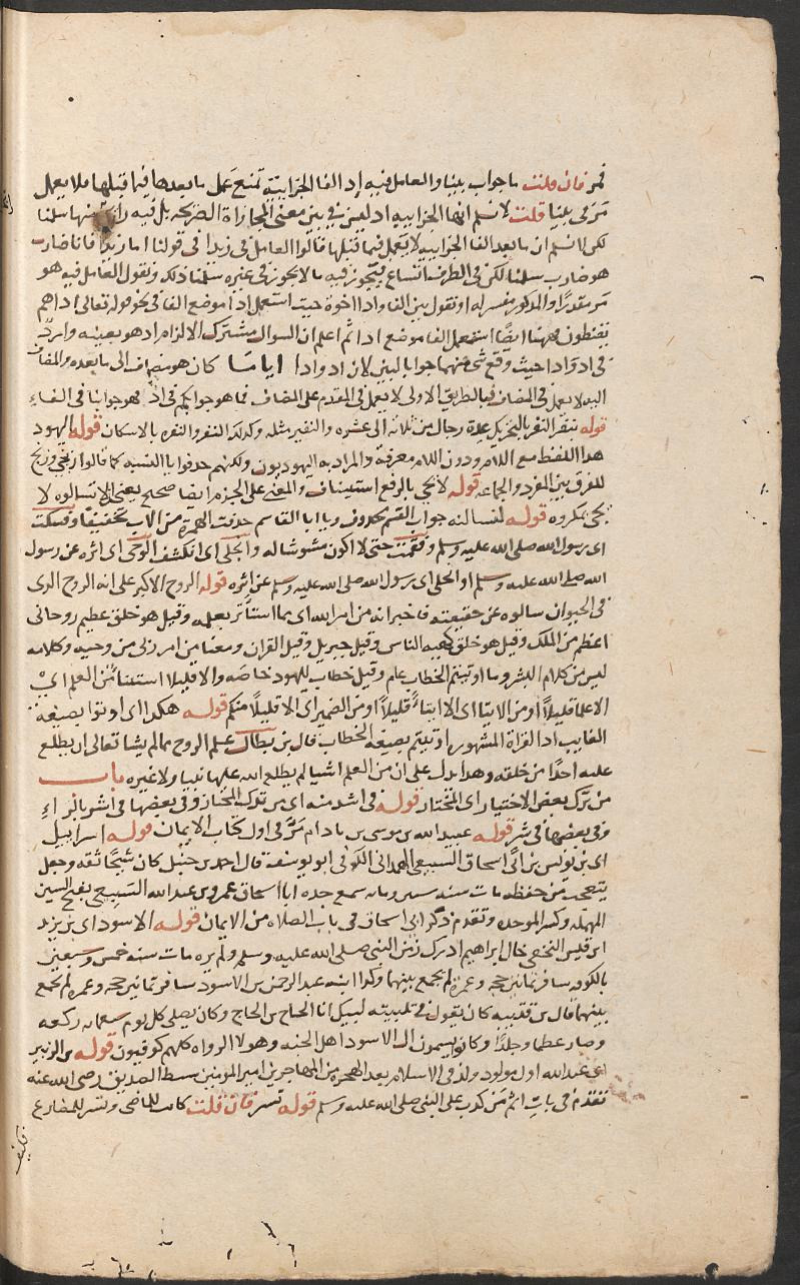 فمر فان قلت ما جواب بينا والعامل فيه اذ الفا الجزايية تمنع عمل ما بعدها فيما قبلها فلا يعمل
مر في بينا قلت لا نسلم انها الجزاييه اذ ليس في بين معنى المجازاة الصريحه بل فيه رايحة منها سلمنا
لكن لا نسلم ان ما بعد الفا الجزاييه لا يعمل فيما قبلها قالوا العامل في زيدا في قولنا اما زيدا فانا ضارب
هو ضارب سلمنا لكن في الظرف اتساع فيتجوز فيه ما لا يجوز في غيره سلمنا ذلك ونقول العامل فيه هو
مر مقدرا والمذكور مفسر له او نقول بين الفا واذا اخوة حيث استعمل اذا موضع الفا في نحو قوله تعالى اذا هم
يقنطون فههنا ايضا استعمل الفا موضع اذا ثم اعلم ان السوال مشترك الالزام اذ هو بعينه وارد
في اذ واذا حيث وقع شي منهما جوابا لبين لان اذ واذا ايا ما كان هو مضاف الى ما بعده والمضاف
اليه لا يعمل في المضاف فبالطريق الاولى لا يعمل في المقدم على المضاف فما هو جوابكم في اذ فهو جوابنا في الفاء
قوله بنفر النفر بالتحريك عدة رجال من ثلاثه الى عشره والنفير مثله وكذلك النفر والنفره بالاسكان قوله اليهود
هذا اللفظ مع اللام ودون اللام معرفة والمراد به اليهوديون ولكنهم حذفوا يا النسبه كما قالوا زنجي وزنج
للفرق بين المفرد والجماعه قوله لا يجي بالرفع استيناف والمعنى على الجزم ايضا صحيح يعني لا تسالوه لا
يجي بمكروه قوله لنسالنه جواب القسم محذوف ويا ابا القاسم حذفت الهمزة من الاب تخفيفا وفسكت
اى رسول الله صلى الله عليه وسلم وفقمت حتى لا اكون مشوشا له وانجلى اى انكشف الوحى اى اثره عن رسول
الله صلى الله عليه وسلم او انجلى اى رسول الله صلى الله عليه وسلم عن اثره قوله الروح الاكبر على انه الروح الذى
في الحيوان سالوه عن حقيقته فاخبر انه من امر الله اى مما استاثر بعلمه وقيل هو خلق عظيم روحانى
اعظم من الملك وقيل هو خلق كهيه الناس وقيل جبريل وقيل القران ومعنا من امر ربى من وحيه وكلامه
ليس من كلام البشر وما اوتيتم الخطاب عام وقيل خطاب لليهود خاصه والا قليلا استثنا من العلم اى
الا علما قليلا او من الايتا اى الا ايتاء قليلا او من الضمير اى الا قليلا منكم قوله هكذا اى اوتوا بصيغة
الغايب اذ القراة المشهوره اوتيتم بصيغه الخطاب قال بن بطال علم الروح مما لم يشا تعالى ان يطلع
عليه احدا من خلقه وهذا يدل على ان من العلم اشيا لم يطلع الله عليها نبيا ولا غيره باب
من ترك بعض الاختيار اى المختار قوله في اشد منه اى من ترك المختار وفي بعضها في اشر بالراء
وفي بعضها في شر قوله عبيد الله بن موسى بن باذام مر في اول كتاب الايمان قوله اسراييل
اى بن يونس بن ابى اسحاق السبيعى الهمدانى الكوفى ابو يوسف قال احمد بن حنبل كان شيخا ثقه وجعل
يتعجب من حفظه مات سنه ستين ومايه سمع جده ابا اسحاق عمرو بن عبد الله السبيعى بفتح السين
المهمله وكسر الموحده وتقدم ذكر ابى اسحاق في باب الصلاه من الايمان قوله الاسود اى بن يزيد
ابن قيس النخعى خال ابراهيم ادرك زمن النبى صلى الله عليه وسلم ولم يره مات سنه خمس وسبعين
بالكوفه سافر ثمانين حجه وعمره لم يجمع بينهما وكذا ابنه عبد الرحمن بن الاسود سافر ثمانين حجه وعمره لم يجمع
بينهما قال بن قتيبه كان يقول في تلبيته لبيك انا الحاج بن الحاج وكان يصلى كل يوم سبعمايه ركعه
وصار عظما وجلدا وكانوا يسمون ال الاسود اهل الجنه وهولا الرواه كلهم كوفيون قوله بن الزبير
اى عبد الله اول مولود ولد في الاسلام بعد الهجره من المهاجرين امير المومنين سبط الصديق رضى الله عنه
تقدم في باب اثم من كذب على النبى صلى الله عليه وسلم قوله تسر فان قلت كانت للماضى وتسر للمضارع
فكيف